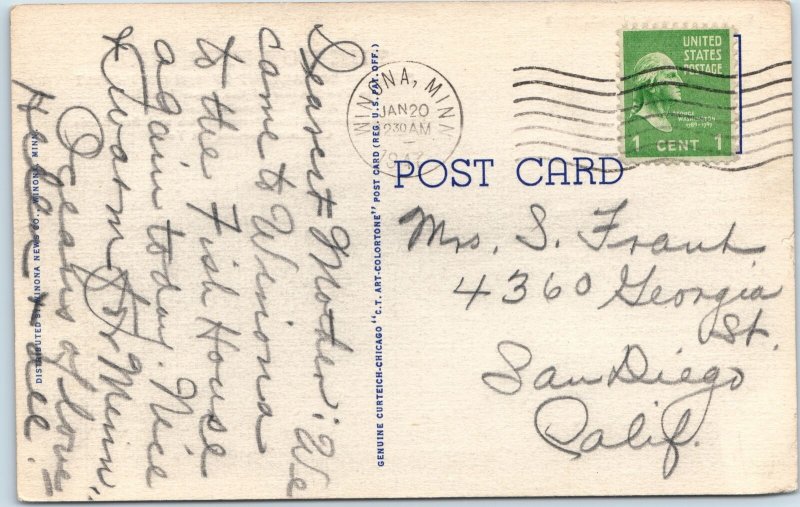 Dearest Mother: We
came to Winona
to the Fish House
again today. Nice
& warm for Minn.
Oceans of love
Helen & Lee.
DISTRIBUTED BY WINONA NEWS CO., WINONA, MINN.
GENUINE CURTEICH-CHICAGO "C.T. ART-COLORTONE" POST CARD (REG. U.S. PAT. OFF.)
WINONA, MINN.
JAN 20
230 AM
POST CARD
UNITED
STATES
POSTAGE
GEORGE
WASHINGTON
1789-1797
1 CENT 1
Mrs. S. Frank
4360 Georgia
St.
San Diego
Calif.